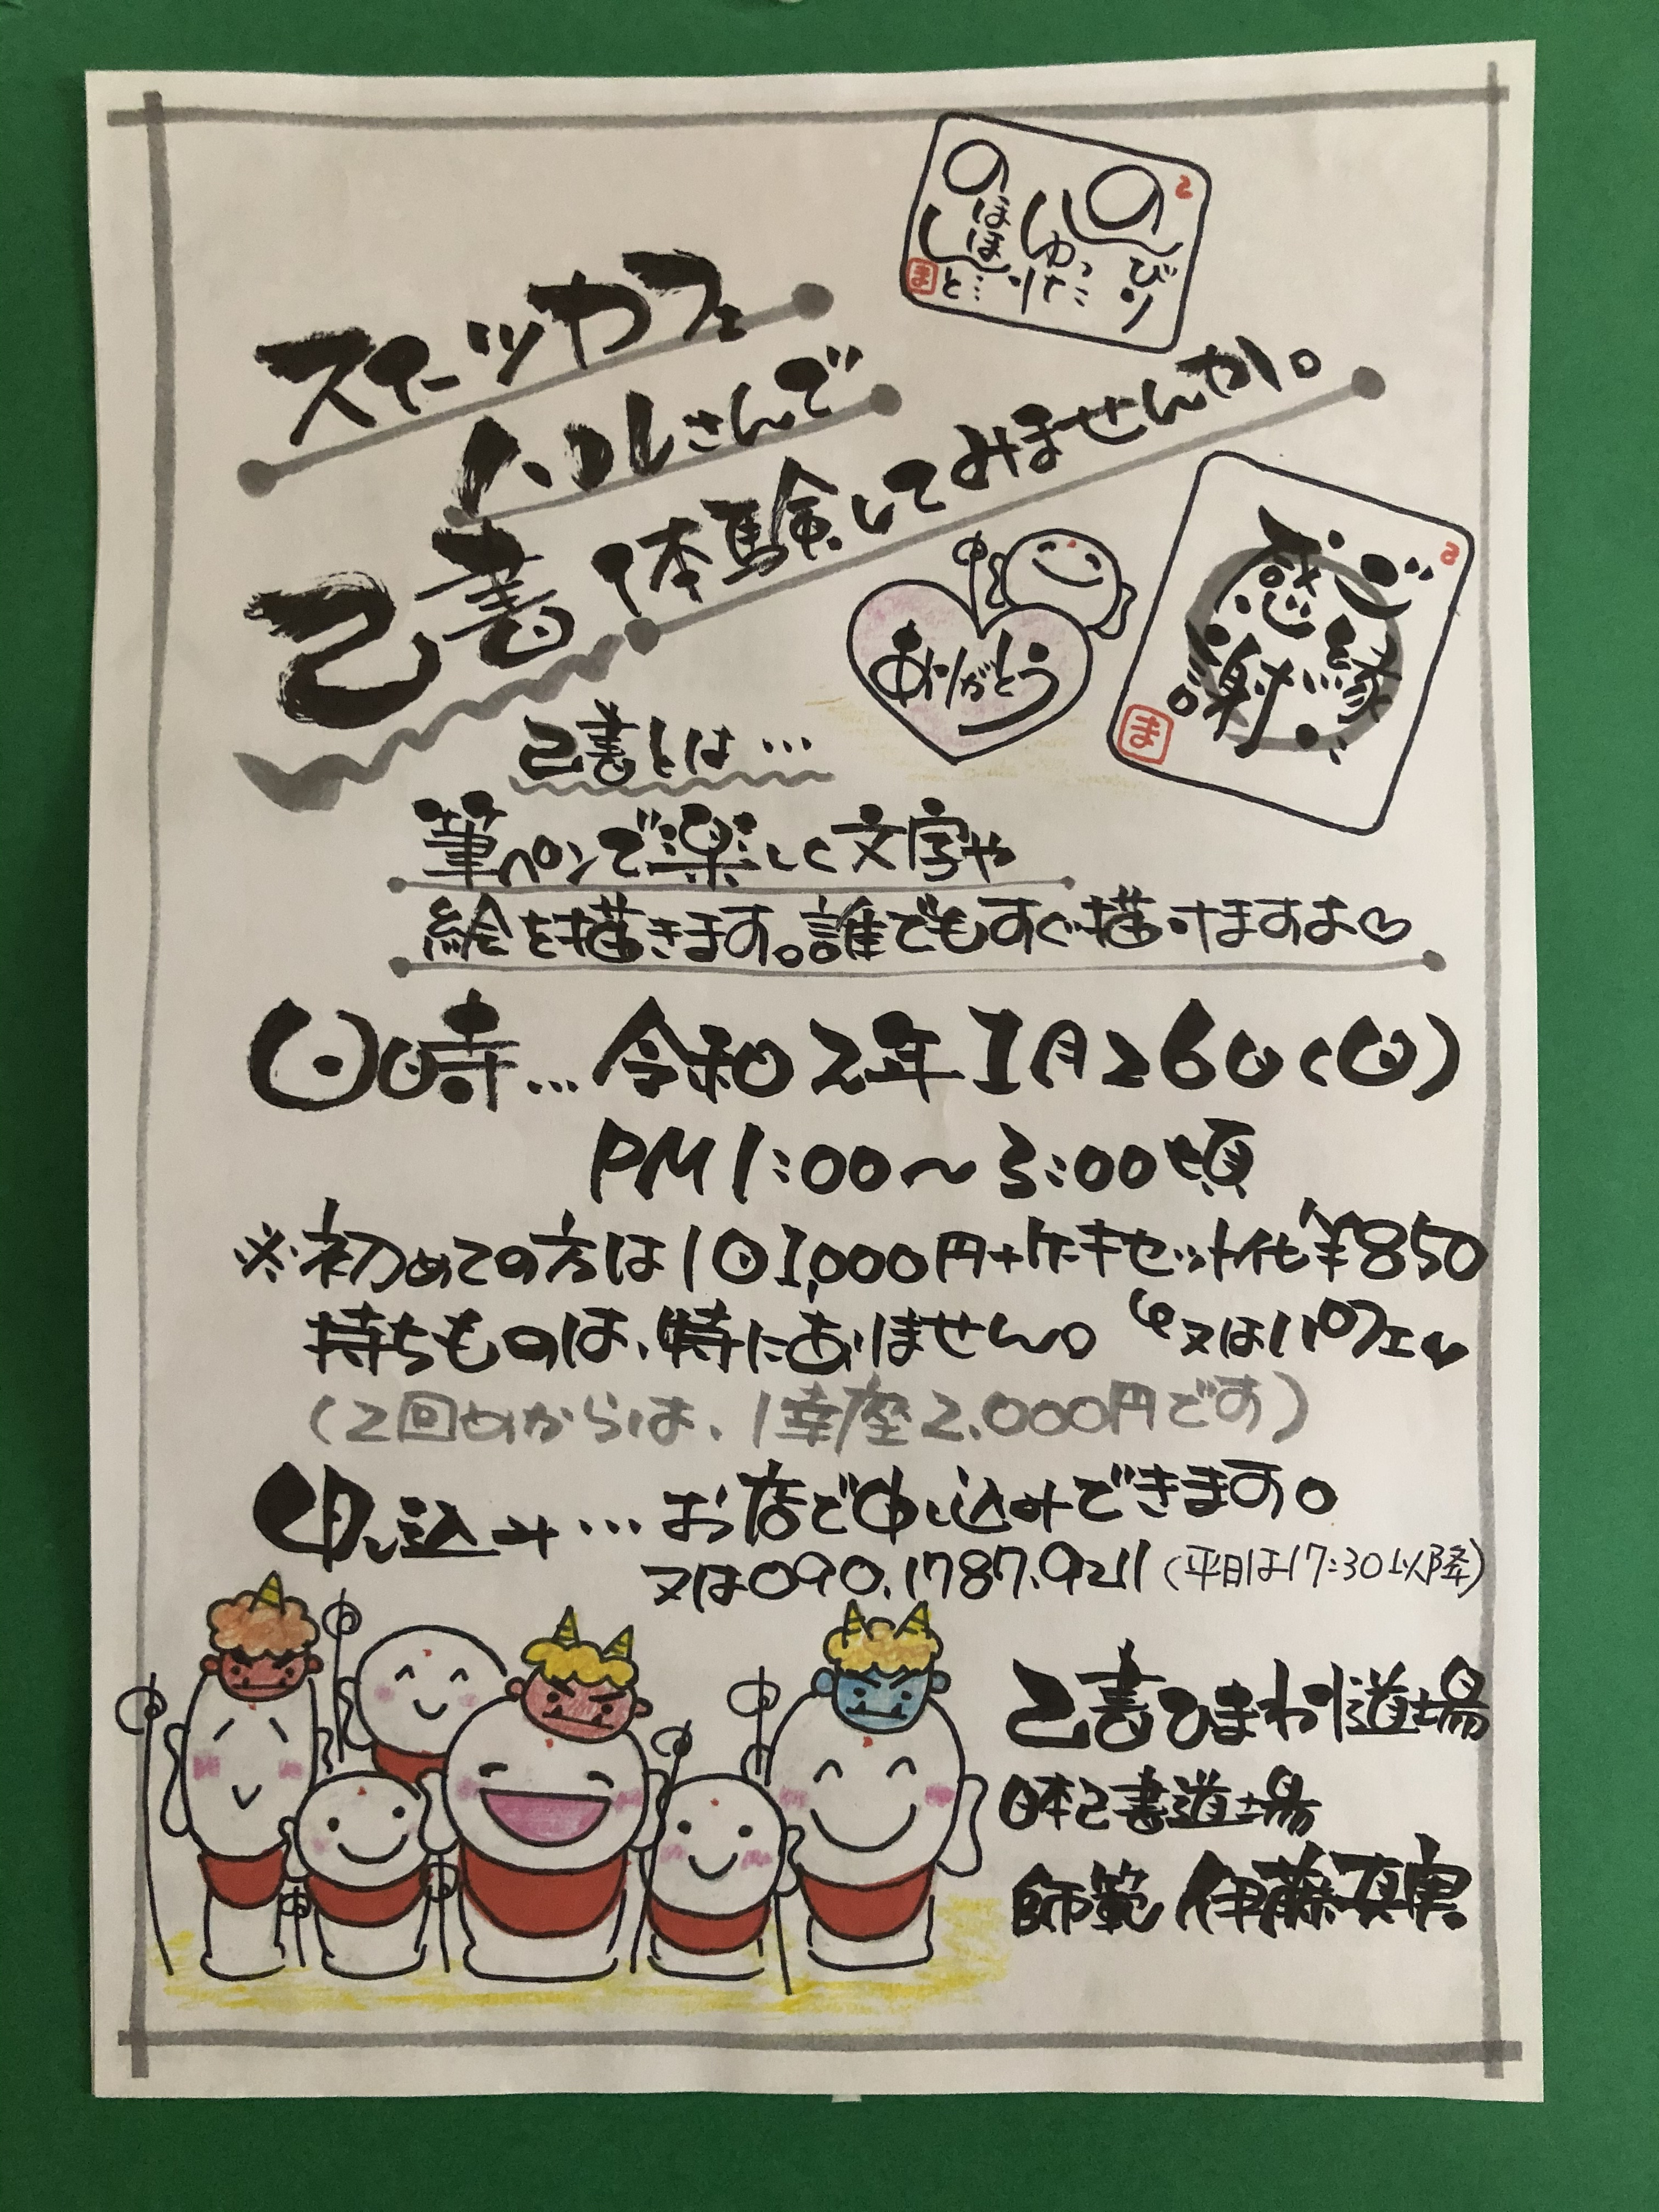 のんびり
ゆったり
のほほんと…
ま
スイーツカフェ
ハルさんで
己書体験してみませんか。
ありがとう
ご縁に
感謝。
ま
己書とは…
筆ペンで楽しく文字や
絵を描きます。誰でもすぐ描けますよ♡
日時…令和2年1月26日(日)
PM1:00〜3:00頃
※初めての方は1回1,000円+ケーキセット代¥850
又はパフェ♥
持ちものは、特にありません。
(2回めからは、1幸座2,000円です)
申し込み…お店で申し込みできます。
又は090.1787.9211(平日は17:30以降)
己書ひまわり道場
日本己書道場
師範 伊藤真実